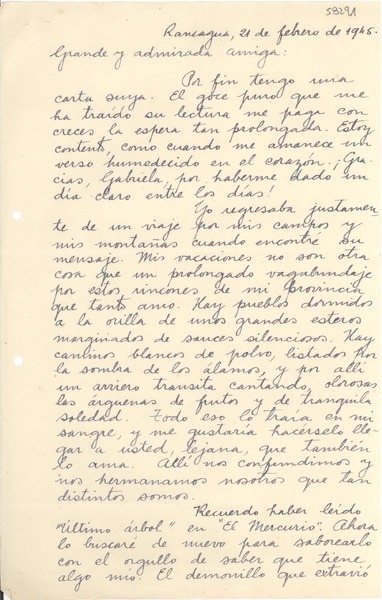 58291
Rancagua, 21 de febrero de 1945.
Grande y admirada amiga:
Por fin tengo una
carta suya. El goce puro que me
ha traído su lectura me paga con
creces la espera tan prolongada. Estoy
contento, como cuando me amanece un
verso humedecido en el corazón. ¡Gra-
cias, Gabriela, por haberme dado un
día claro entre los días!
Yo regresaba justamen-
te de un viaje por mis campos y
mis montañas cuando encontré su
mensaje. Mis vacaciones no son otra
cosa que un prolongado vagabundaje
por estos rincones de mi provincia
que tanto amo. Hay pueblos dormidos
a la orilla de unos grandes esteros
marginados de sauces silenciosos. Hay
caminos blancos de polvo, listados por
la sombra de los álamos, y por allí
un arriero transita cantando, olorosas
las árguenas de frutos y de tranquila
soledad. Todo eso lo traía en mi
sangre, y me gustaría hacérselo lle-
gar a usted, lejana, que también
lo ama. Allí nos confundimos y
nos hermanamos nosotros que tan
distintos somos.
Recuerdo haber leído
"Último árbol" en "El Mercurio". Ahora
lo buscaré de nuevo para saborearlo
con el orgullo de saber que tiene
algo mío. El demonillo que extravió